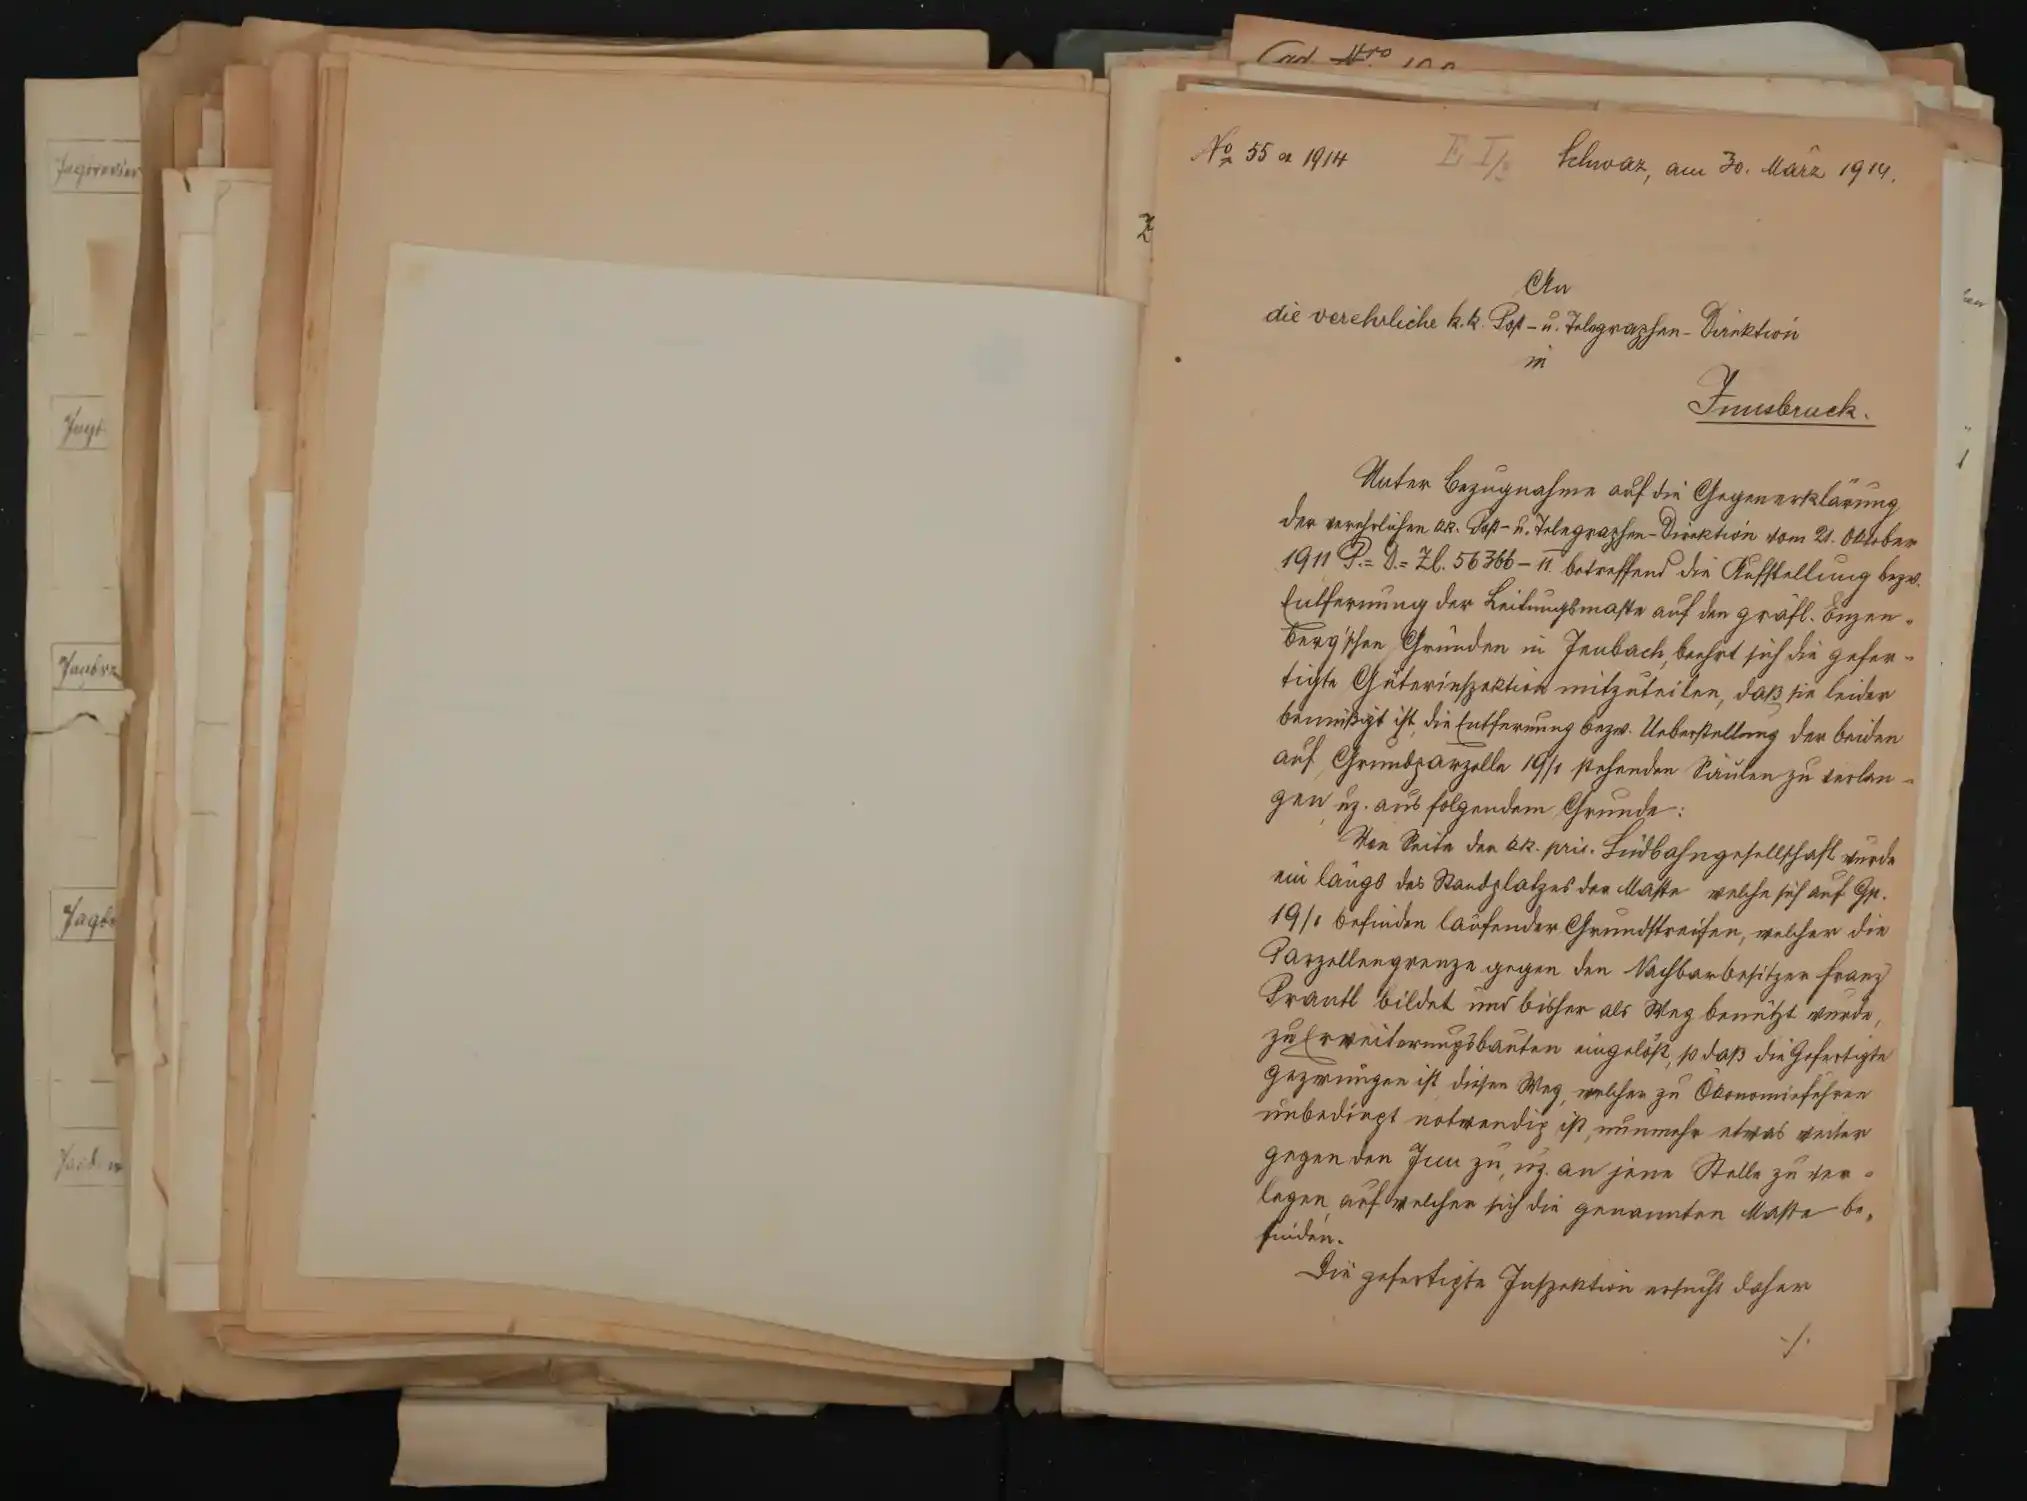 Jagdrevier
Jagd
Jagdre
Jagdr
Cad. Nro 100
No 55 ex 1914
E I/2
Schwaz, am 30. März 1914.
An
die verehrliche k.k. Post- u. Telegraphen-Direktion
in
Innsbruck.
Unter Bezugnahme auf die Gegenerklärung
der verehrlichen kk. Post- u. Telegraphen-Direktion vom 21. Oktober
1911 P.= D.= Zl. 56366-II. betreffend die Aufstellung bezw.
Entfernung der Leitungsmaste auf den gräfl. Enzen-
berg'schen Gründen in Jenbach, beehrt sich die gefer-
tigte Güterinspektion mitzuteilen, daß sie leider
bemüßigt ist, die Entfernung bezw. Ueberstellung der beiden
auf Grundparzelle 19/1 stehenden Säulen zu verlan-
gen, uz. aus folgendem Grunde:
Von Seite der kk. priv. Südbahngesellschaft wurde
ein längs des Standplatzes der Maste welche sich auf Gp.
19/1 befinden laufender Grundstreifen, welcher die
Parzellengrenze gegen den Nachbarbesitzer Franz
Prantl bildet und bisher als Weg benützt wurde,
zu Erweiterungsbauten eingelöst, so daß die Gefertigte
gezwungen ist, diesen Weg, welcher zu Ökonomiefuhren
unbedingt notwendig ist, nunmehr etwas weiter
gegen den Inn zu, uz. an jene Stelle zu ver-
legen, auf welcher sich die genannten Maste be-
finden.
Die gefertigte Inspektion ersucht daher
./.